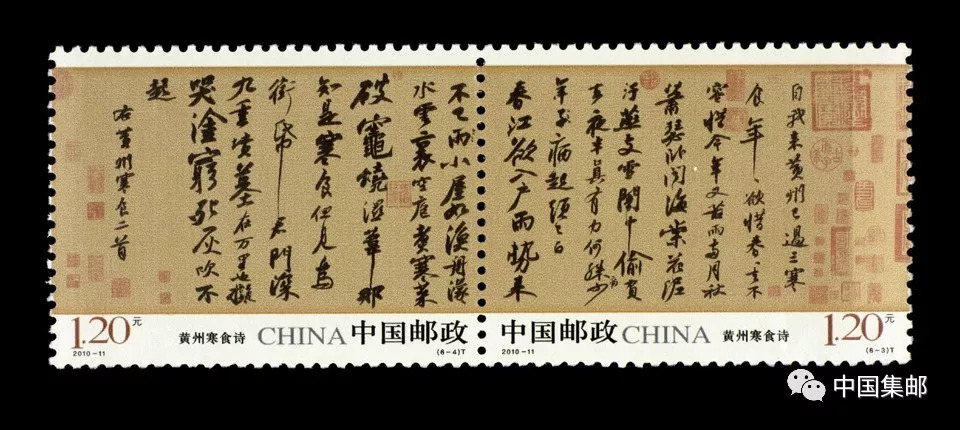 自我来黄州已過三寒
食年ゝ欲惜春ゝ去不
容惜今年又苦雨兩月秋
蕭瑟卧聞海棠花泥
汙燕支雪闇中偷負
去夜半真有力何殊少
年子病起須已白
春江欲入户雨勢来
不已雨小屋如漁舟濛
水雲裏空庖煮寒菜
破竈燒濕葦那
知是寒食但見烏
銜帋君門深
九重墳墓在万里也擬
哭塗窮死灰吹不
起
右黄州寒食二首
1.20元 黄州寒食诗 CHINA 中国邮政
2010-11 (6-4)T
CHINA 中国邮政 黄州寒食诗 1.20元
2010-11 (6-3)T
中国集邮